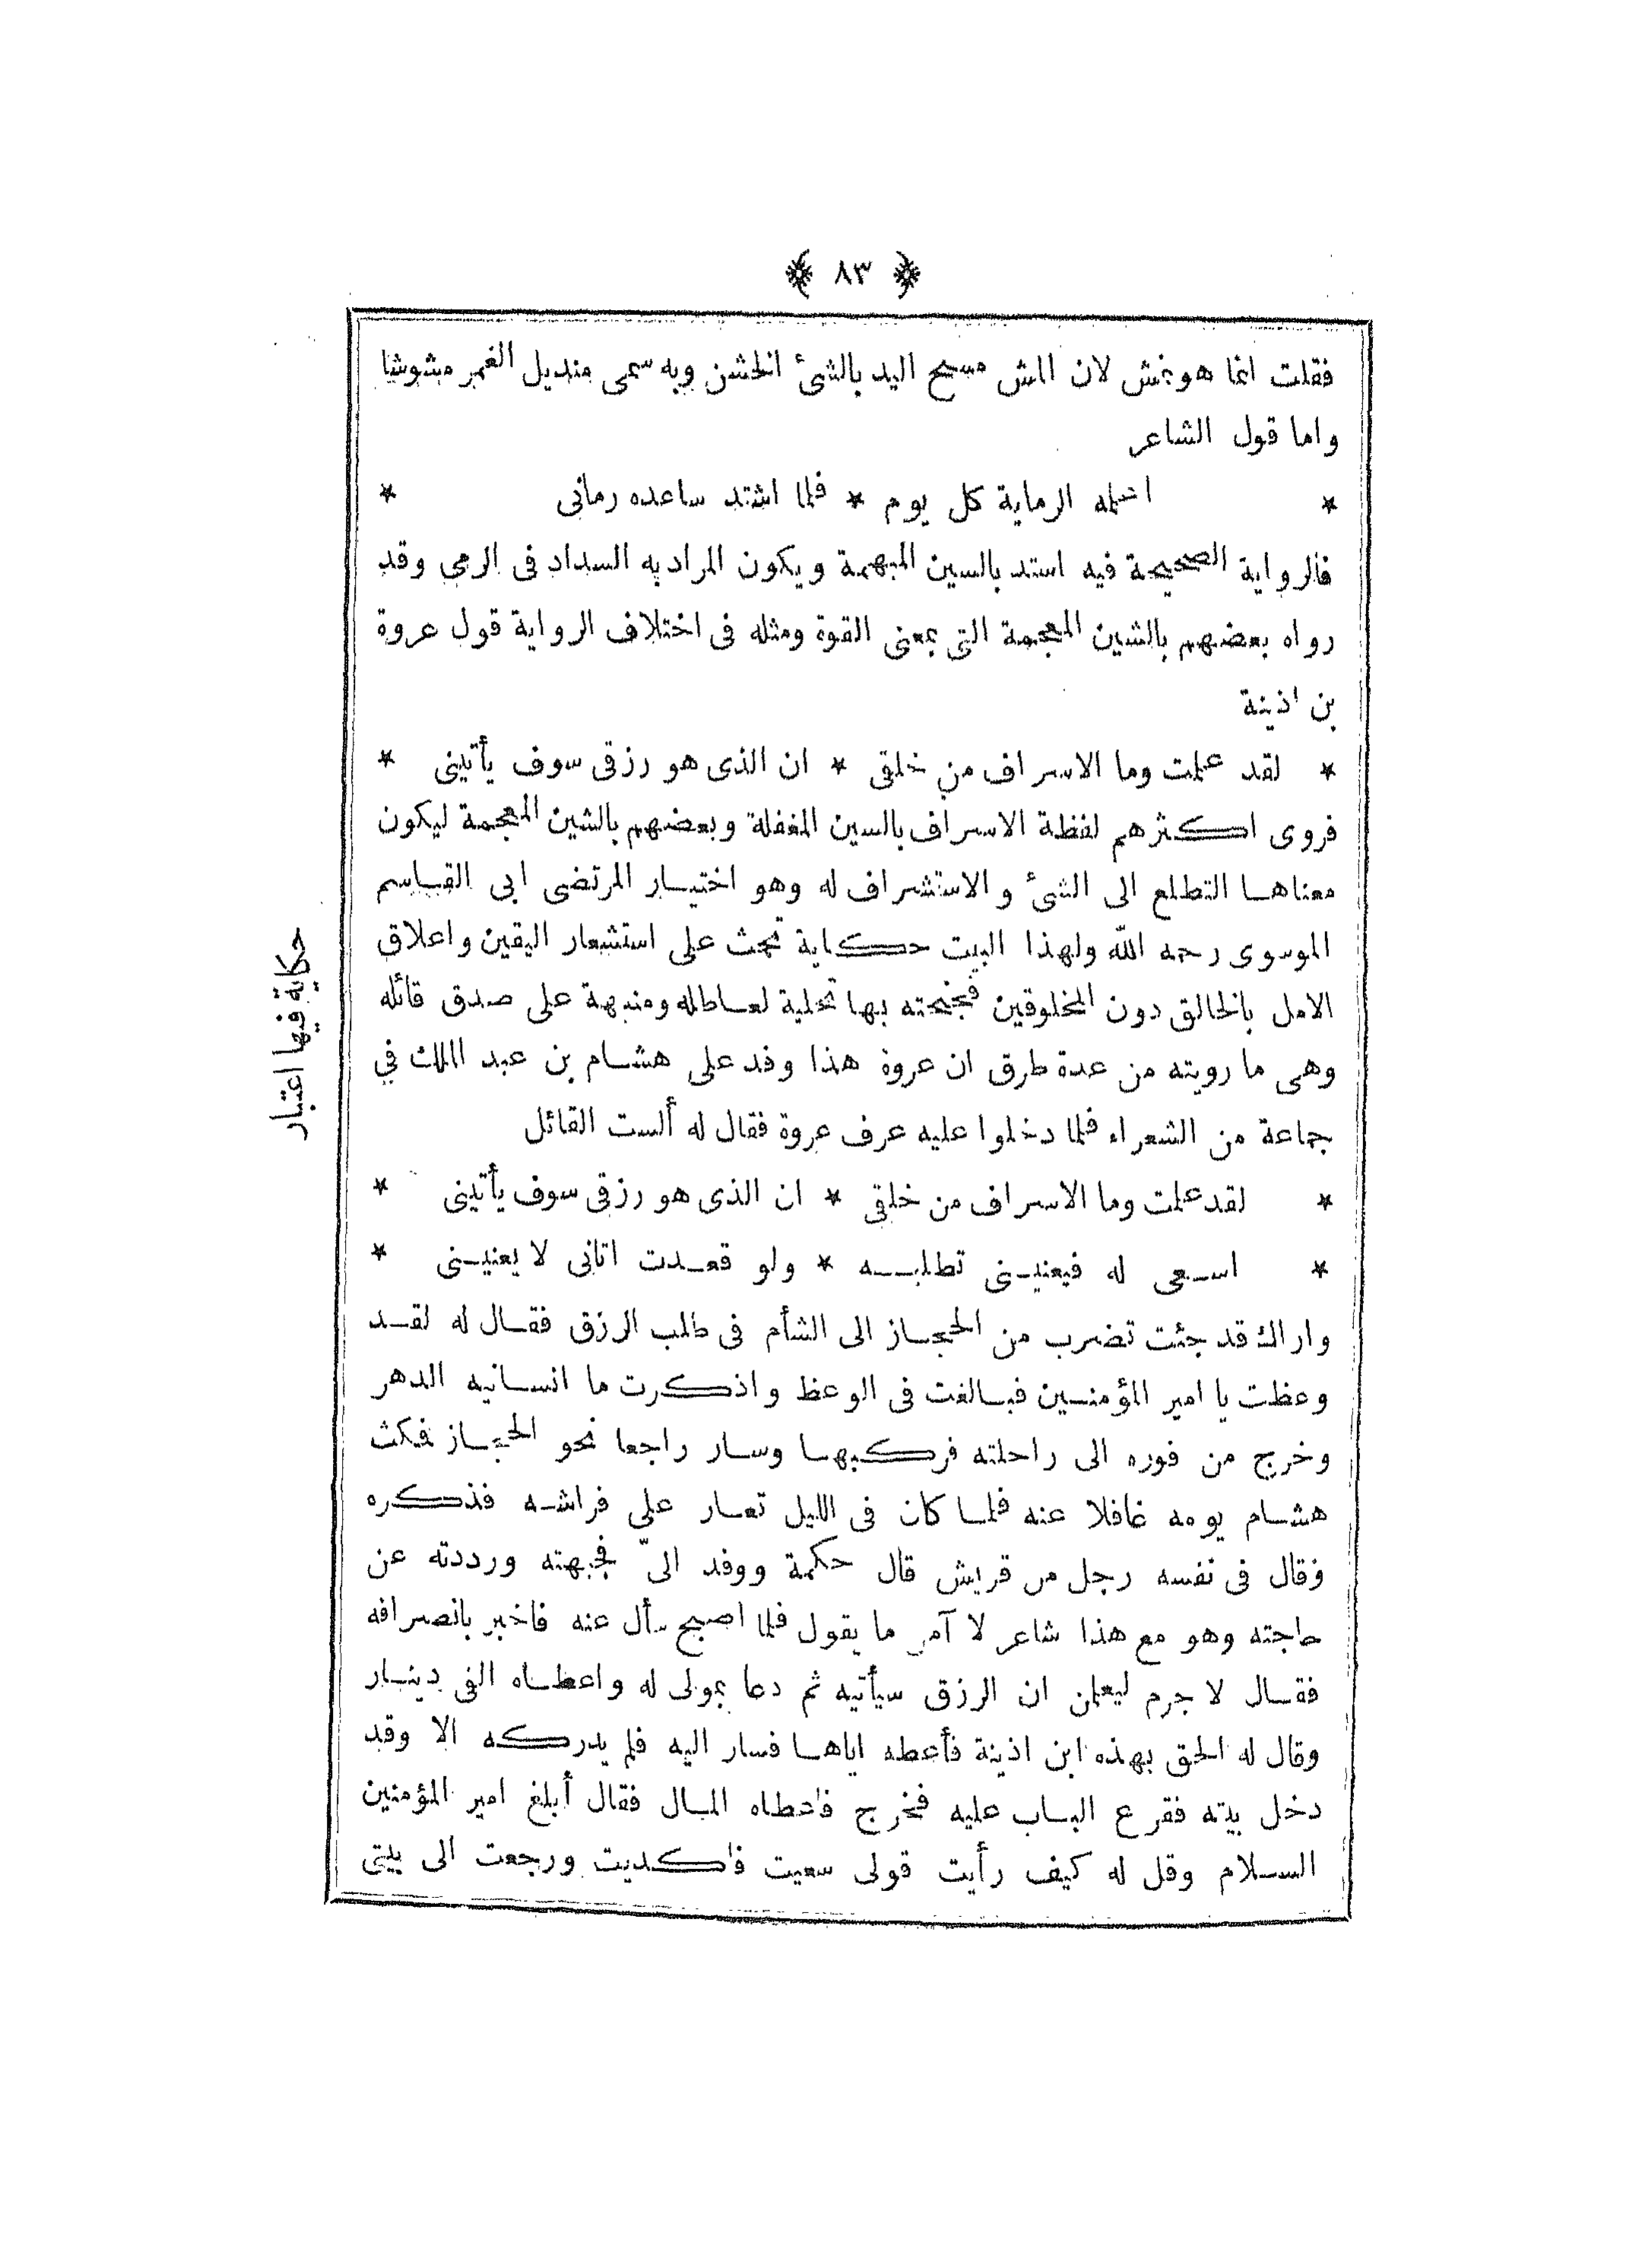 ﴿ ٨٣ ﴾
فقلت انما هو نمش لان المش مسح اليد بالشئ الخشن وبه سمى منديل الغمر مشوشا
واما قول الشاعر
* اعلمه الرماية كل يوم * فلما اشتد ساعده رمانى *
فالرواية الصحيحة فيه استد بالسين المبهمة ويكون المراد به السداد فى الرمى وقد
رواه بعضهم بالشين المعجمة التى بمعنى القوة ومثله فى اختلاف الرواية قول عروة
بن اذينة
* لقد علمت وما الاسراف من خلقى * ان الذى هو رزقى سوف يأتينى *
فروى اكثرهم لفظة الاسراف بالسين المغفلة وبعضهم بالشين المعجمة ليكون
معناها التطلع الى الشئ والاستشراف له وهو اختيار المرتضى ابى القاسم
الموسوى رحمه الله ولهذا البيت حكاية تحث على استشعار اليقين واعلاق
الامل بالخالق دون المخلوقين فجنحته بها تحلية لعاطله ومنبهة على صدق قائله
وهى ما رويته من عدة طرق ان عروة هذا وفد على هشام بن عبد الملك في
جماعة من الشعراء فلما دخلوا عليه عرف عروة فقال له ألست القائل
* لقد علمت وما الاسراف من خلقى * ان الذى هو رزقى سوف يأتينى *
* اسعى له فيعنينى تطلبه * ولو قعدت اتانى لا يعنينى *
واراك قد جئت تضرب من الحجاز الى الشأم فى طلب الرزق فقال له لقد
وعظت يا امير المؤمنين فبالغت فى الوعظ واذكرت ما انسانيه الدهر
وخرج من فوره الى راحلته فركبها وسار راجعا نحو الحجاز فمكث
هشام يومه غافلا عنه فلما كان فى الليل تعار على فراشه فذكره
وقال فى نفسه رجل من قريش قال حكمة ووفد الىّ فجبهته ورددته عن
حاجته وهو مع هذا شاعر لا آمن ما يقول فلما اصبح سأل عنه فاخبر بانصرافه
فقال لا جرم ليعلمن ان الرزق سيأتيه ثم دعا بمولى له واعطاه الفى دينار
وقال له الحق بهذه ابن اذينة فأعطه اياها فسار اليه فلم يدركه الا وقد
دخل بيته فقرع الباب عليه فخرج فاعطاه المال فقال أبلغ امير المؤمنين
السلام وقل له كيف رأيت قولى سعيت فاكديت ورجعت الى بيتى
حكاية فيها اعتبار